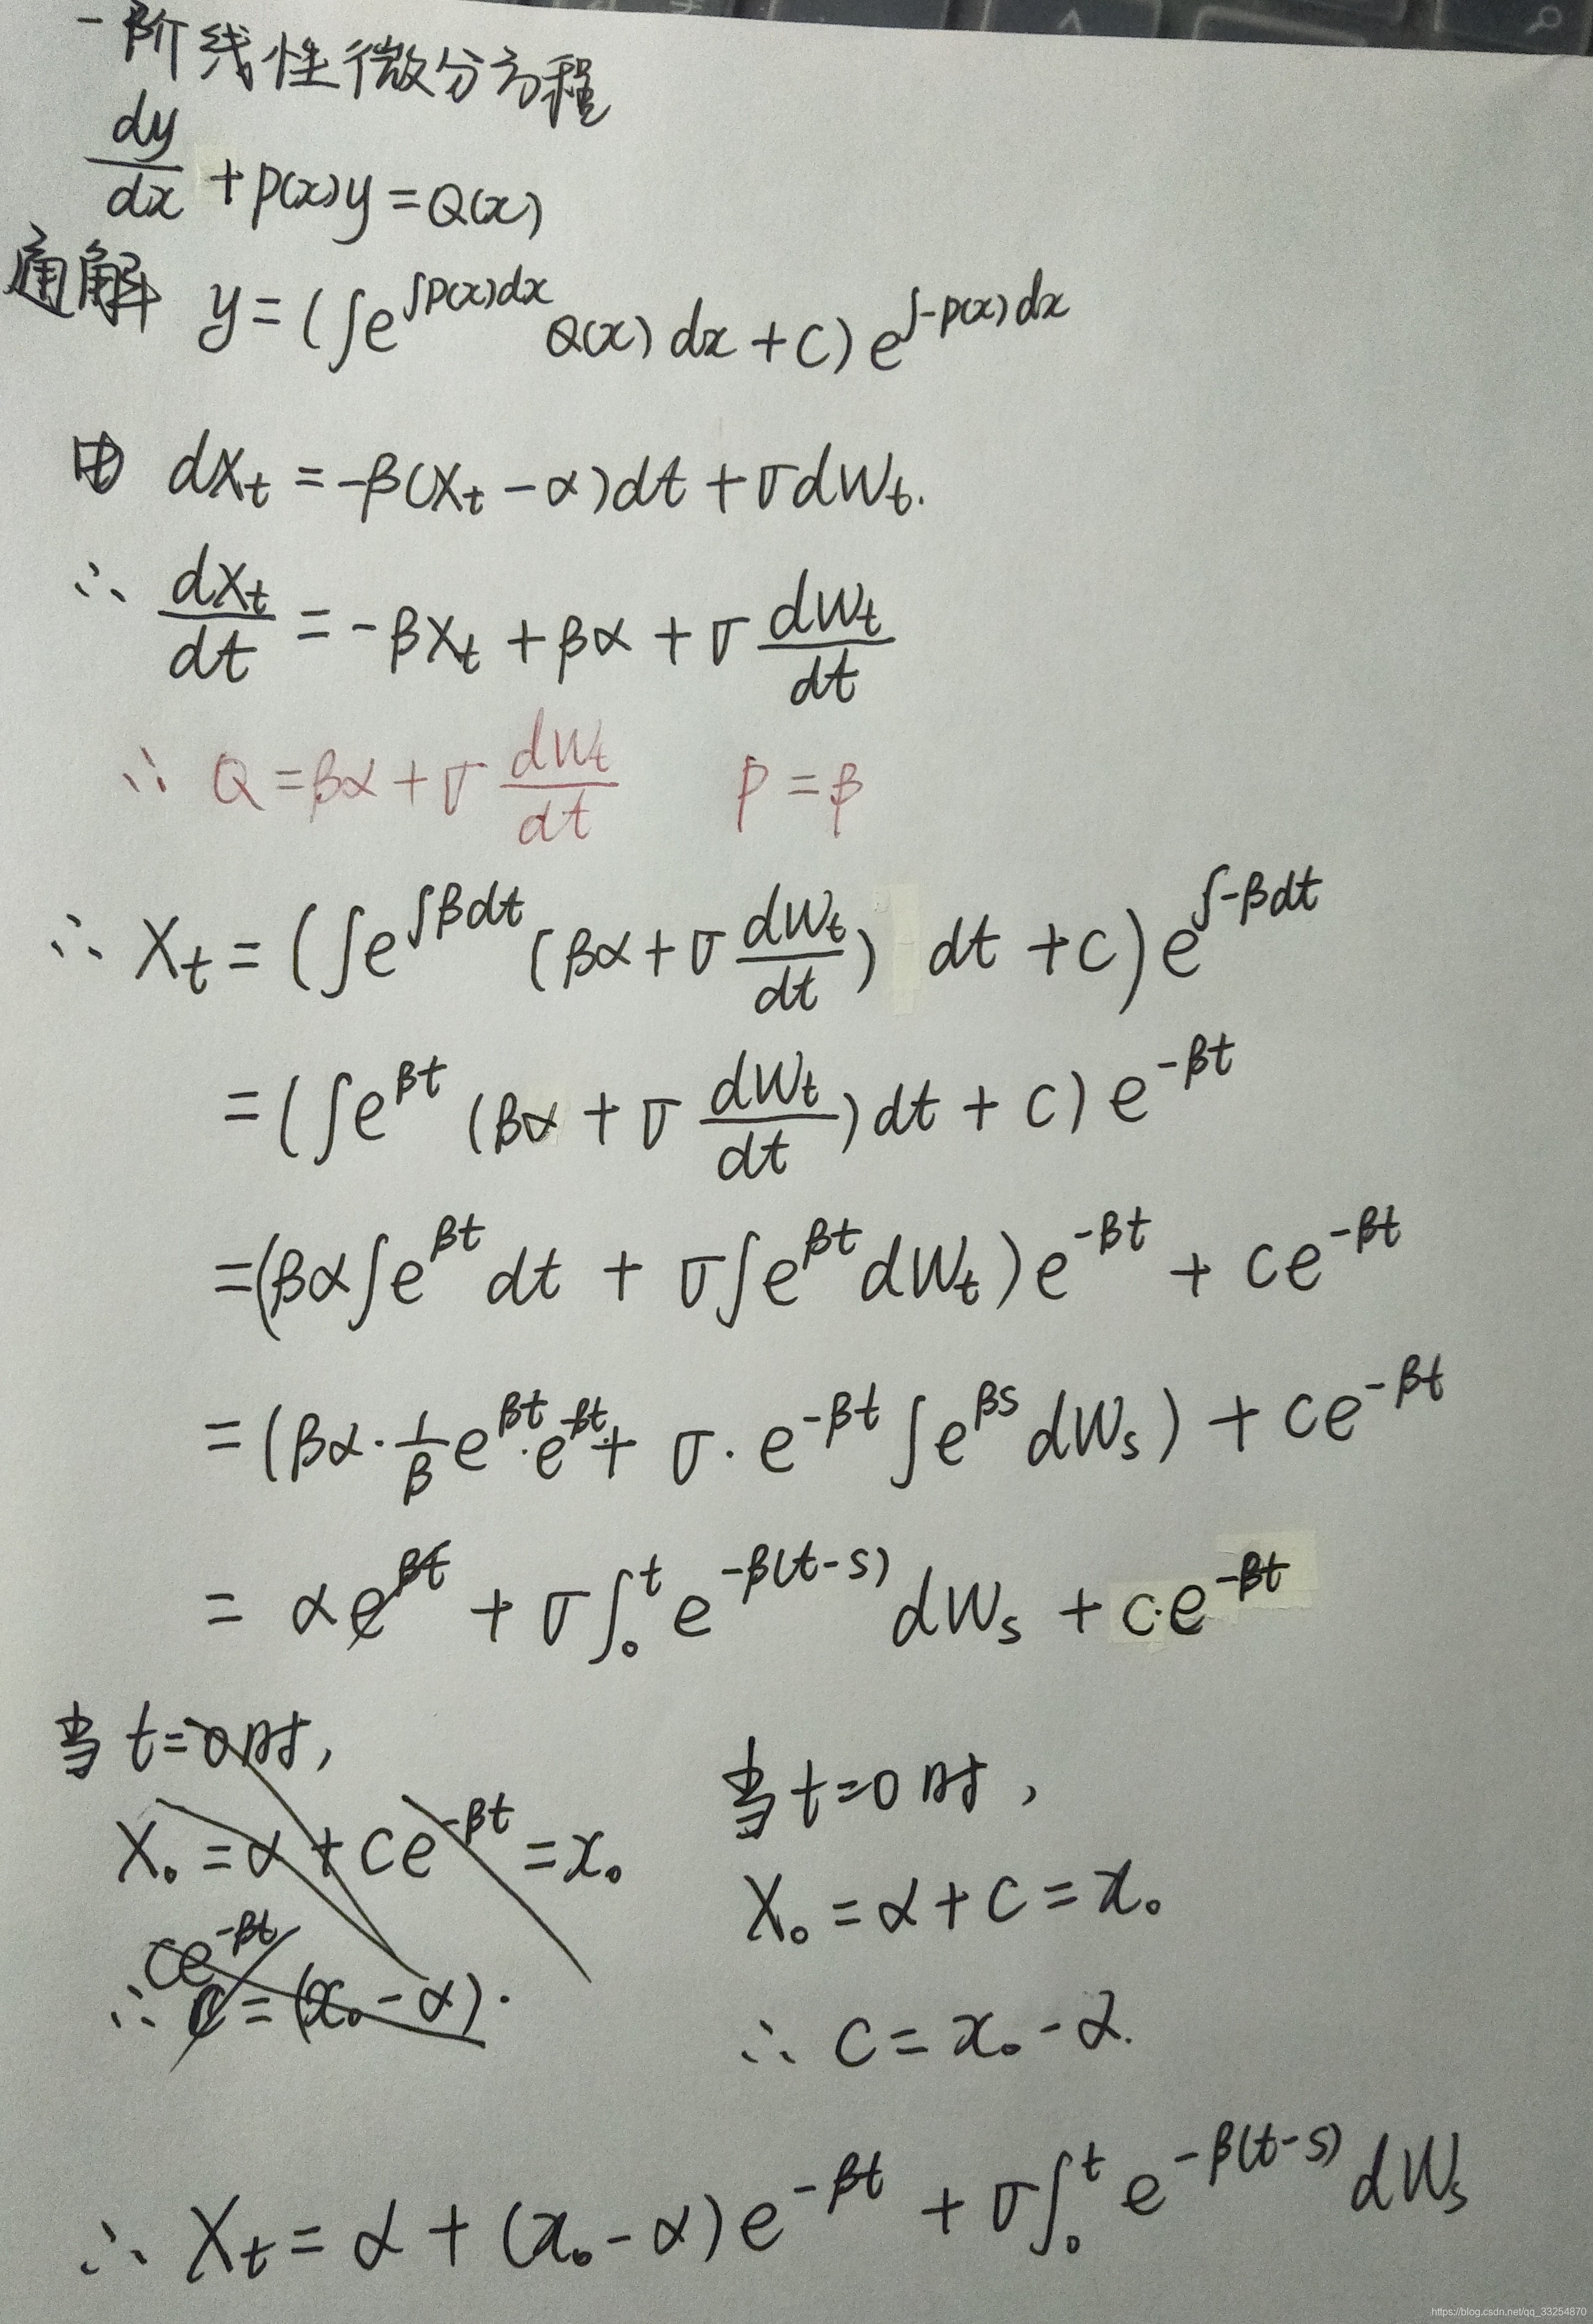 一阶线性微分方程
dy/dx + p(x)y = Q(x)
通解 y = (∫e^{∫p(x)dx} Q(x) dx + C) e^{∫-p(x)dx}
由 dX_t = -β(X_t - α)dt + σdW_t.
∴ dX_t/dt = -βX_t + βα + σ dW_t/dt
∴ Q = βα + σ dW_t/dt P = β
∴ X_t = (∫e^{∫βdt} (βα + σ dW_t/dt) dt + C) e^{∫-βdt}
= (∫e^{βt} (βα + σ dW_t/dt) dt + C) e^{-βt}
= (βα∫e^{βt} dt + σ∫e^{βt} dW_t) e^{-βt} + Ce^{-βt}
= (βα · 1/β e^{βt} · e^{-βt} + σ · e^{-βt} ∫e^{βs} dW_s) + Ce^{-βt}
= αe^{βt} + σ∫_0^t e^{-β(t-s)} dW_s + C·e^{-βt}
当 t=0时,
X_0 = α + Ce^{-βt} = x_0
Ce^{-βt}
∴ C = (x_0 - α).
当 t=0时,
X_0 = α + C = x_0
∴ C = x_0 - α.
∴ X_t = α + (x_0 - α)e^{-βt} + σ∫_0^t e^{-β(t-s)} dW_s
https://blog.csdn.net/qq_33254870